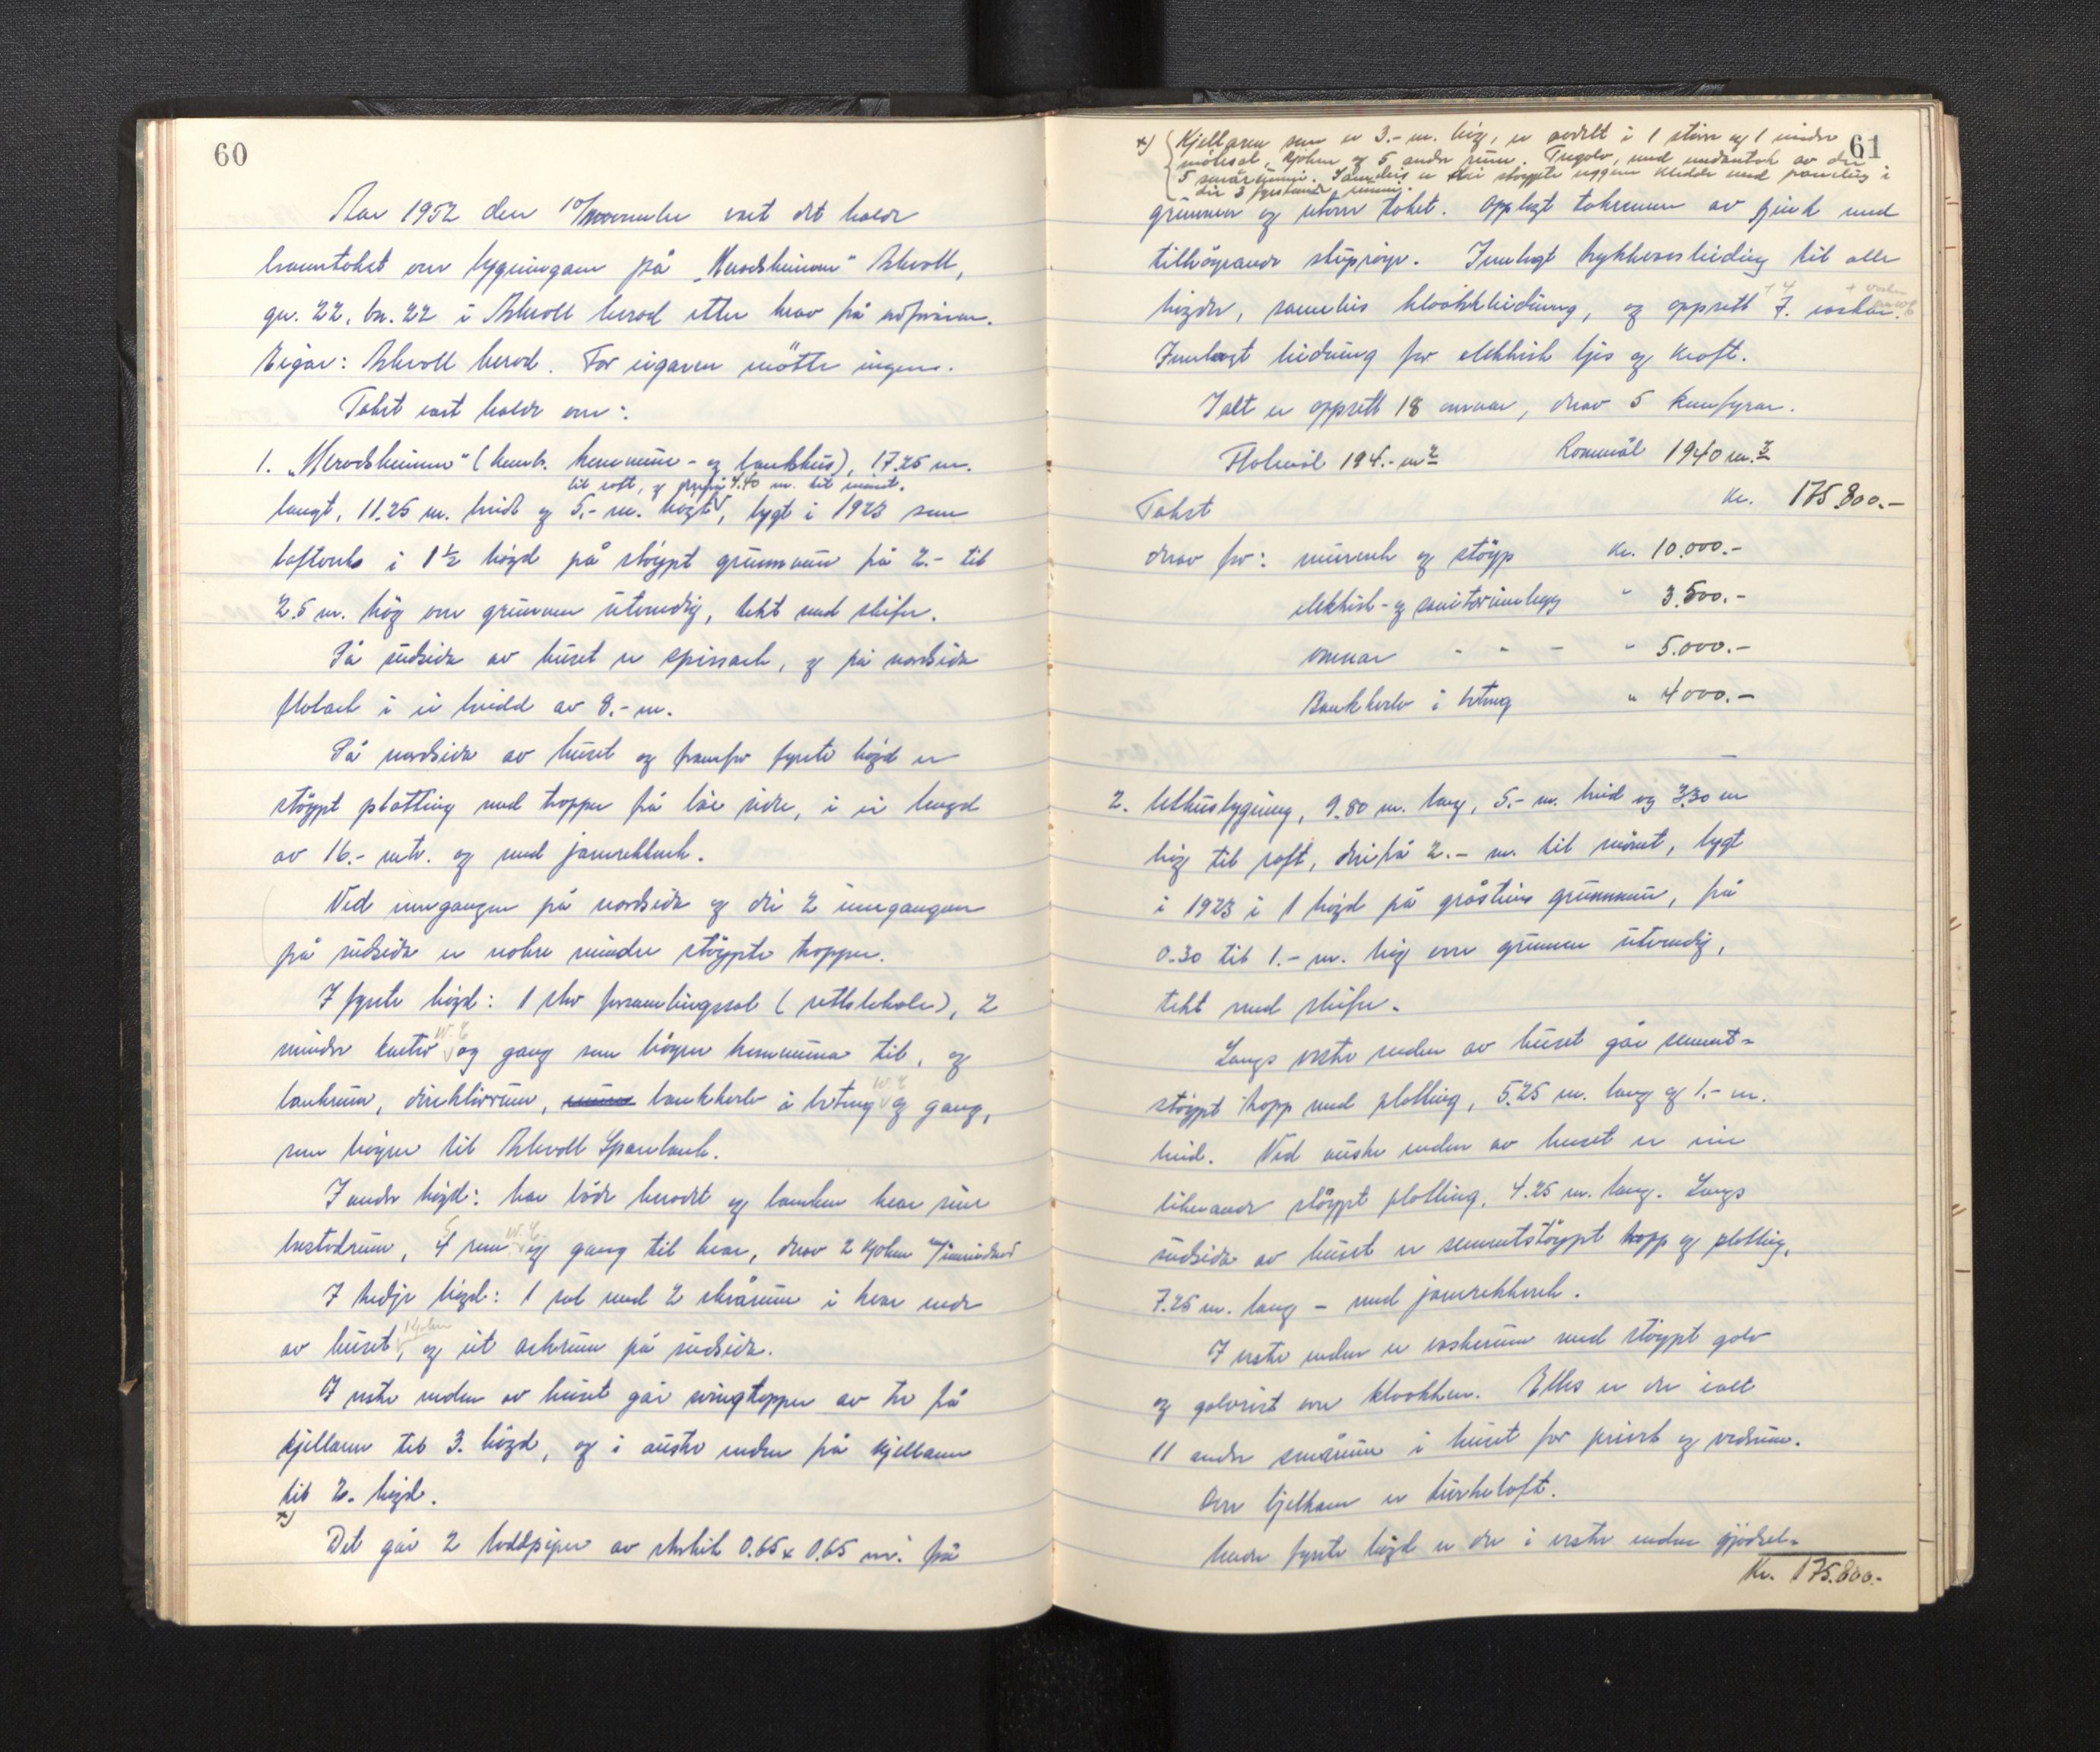 60
Aar 1952 den 10/november vart det halde
branntakst over bygningane på „Heradsheimen“ Askvoll,
gn. 22, bn. 22 i Askvoll herad etter krav frå
Eigar: Askvoll herad. For eigaren møtte ingen.
Takst vart halde over:
1. „Heradsheimen“ (komb. kommune- og bankhus), 17.25 m.
til raft, og frå 4.40 m. til mønet.
langt, 11.25 m. breidt og 5.- m. høgt, bygt i 1923 som
lafteverk i 1 1/2 høgd på støypt grunnmur frå 2.- til
2.5 m. høg over grunnen utvendig, tekt med skifer.
På sudsida av huset er spissark, og på nordsida
flatark i ei breidd av 8.- m.
På nordsida av huset og framfor fyrste høgd er
støypt platting med trapper frå båe sider, i ei lengd
av 16.- mtr. og med jarnrekkverk.
Ved inngangen på nordsida og dei 2 inngangane
på sudsida er nokre mindre støypte trapper.
I fyrste høgd: 1 stor forsamlingssal (rettslokale), 2
mindre kontor W.C og gang som høyrer kommunen til, og
bankrum, direktivrum, bankkvelv i betong W.C og gang,
som høyrer til Askvoll Sparebank.
I andre høgd: har både heradet og banken kvar sine
bustadrum, 4 rum W.C og gang til kvar, derav 2 kjøken
I tredje høgd: 1 sal med 2 skrårum i kvar ende
av huset, kjøken og eit arkrum på sudsida.
I vestre enden av huset går svingtrapper av tre frå
kjellaren til 3. høgd, og i austre enden frå kjellaren
til 2. høgd.
x)
Det går 2 teglpiper av storleik 0.65 x 0.65 m. frå
61
x) Kjellaren som er 3.- m. høg, er avdelt i 1 større og 1 mindre
møtesal, kjøken og 5 andre rum. Tregolv, med undantak av dei
5 smårumi. Sameleis er dei støypte veggene kledde med paneling i
dei 3 fyrstnemde rummi.
grunnen og utover taket. Opplagt takrenner av zink med
tilhøyrande støyprøyr. Innlagt trykkvassleiding til alle
høgder, sameleis kloakkleidning, og oppsett 7. vaskar.
Innlagt leidning for elektrisk ljos og kraft.
I alt er oppsett 18 omnar, derav 5 komfyrar.
Flatmål 194.- m2 Rommål 1940 m.3
Takst kr. 175.800.-
derav for: murverk og støyp kr. 10.000.-
elektrisk- og sanitæranlegg " 3.500.-
omnar - - - " 5.000.-
Bankkvelv i betong " 4000.-
2. Uthusbygning, 9.80 m. lang, 5.- m. breid og 3.30 m
høg til raft, derifrå 2.- m. til mønet, bygt
i 1923 i 1 høgd på gråsteins grunnmur, frå
0.30 til 1.- m. høg over grunnen utvendig,
tekt med skifer.
Langs vestre enden av huset går sement-
støypt trapp med platting, 5.25 m. lang og 1.- m.
breid. Ved austre enden av huset er ein
liknande støypt platting, 4.25 m. lang. Langs
sudsida av huset er sementstøypt trapp og platting,
7.25 m. lang - med jarnrekkverk.
I vestre enden er vaskerum med støypt golv
og golvrist over kloakken. Elles er der ialt
11 andre smårum i huset for privet og vedrum.
Over bjelkane er tørkeloft.
Under fyrste høgd er der i vestre enden gjødsel-
Kr. 175.800.-